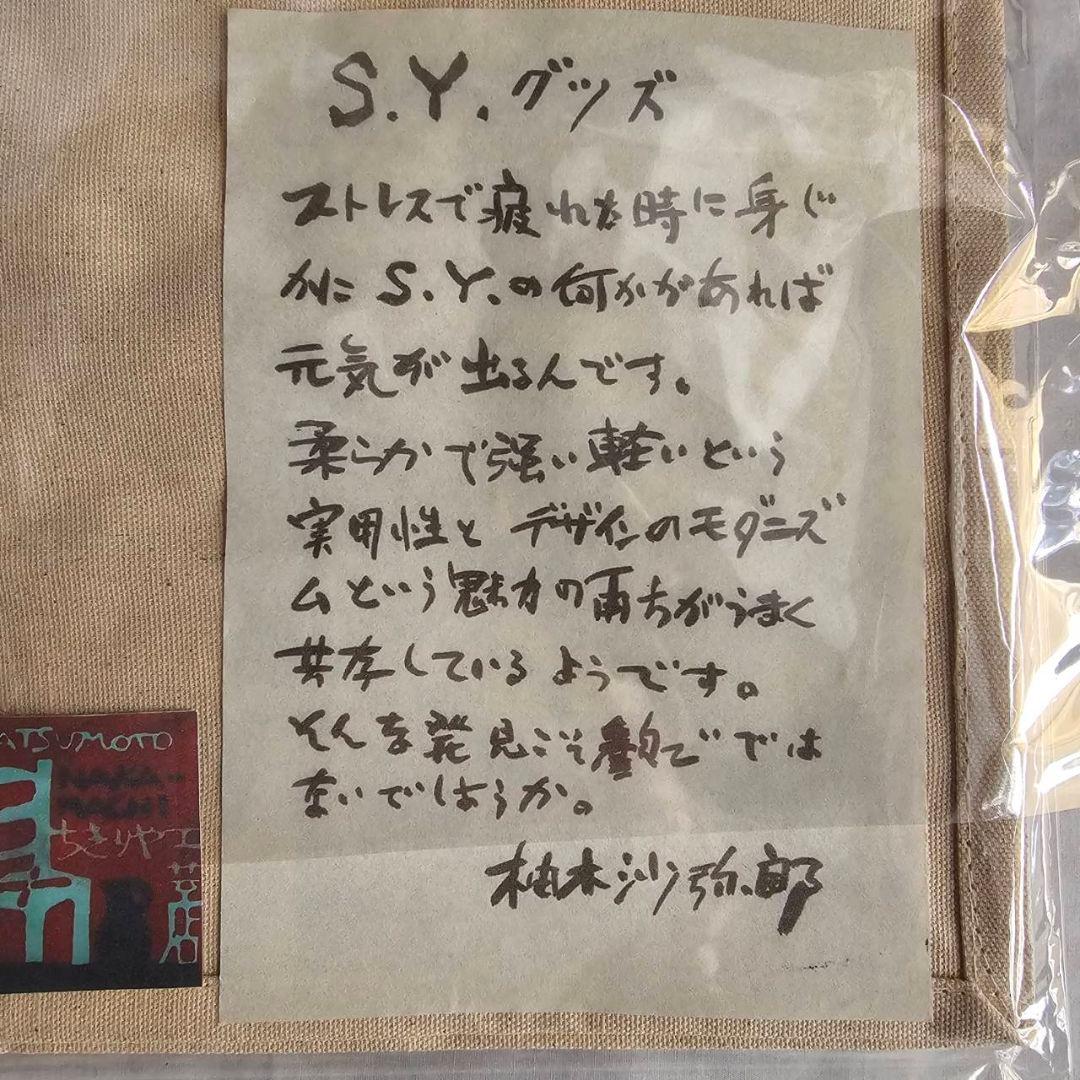 S.Y.グッズ
ストレスで疲れた時に身ぢ
かに S.Y.の何かがあれば
元気が出るんです。
柔らかで強い軽いという
実用性と デザインのモダニズ
ムという魅力の両方がうまく
共存しているようです。
そんな発見こそ まででは
ないでしょうか。
柚木沙弥郎
ATSUMOTO
NAKA-
MACHI
ちきりや工
芸店